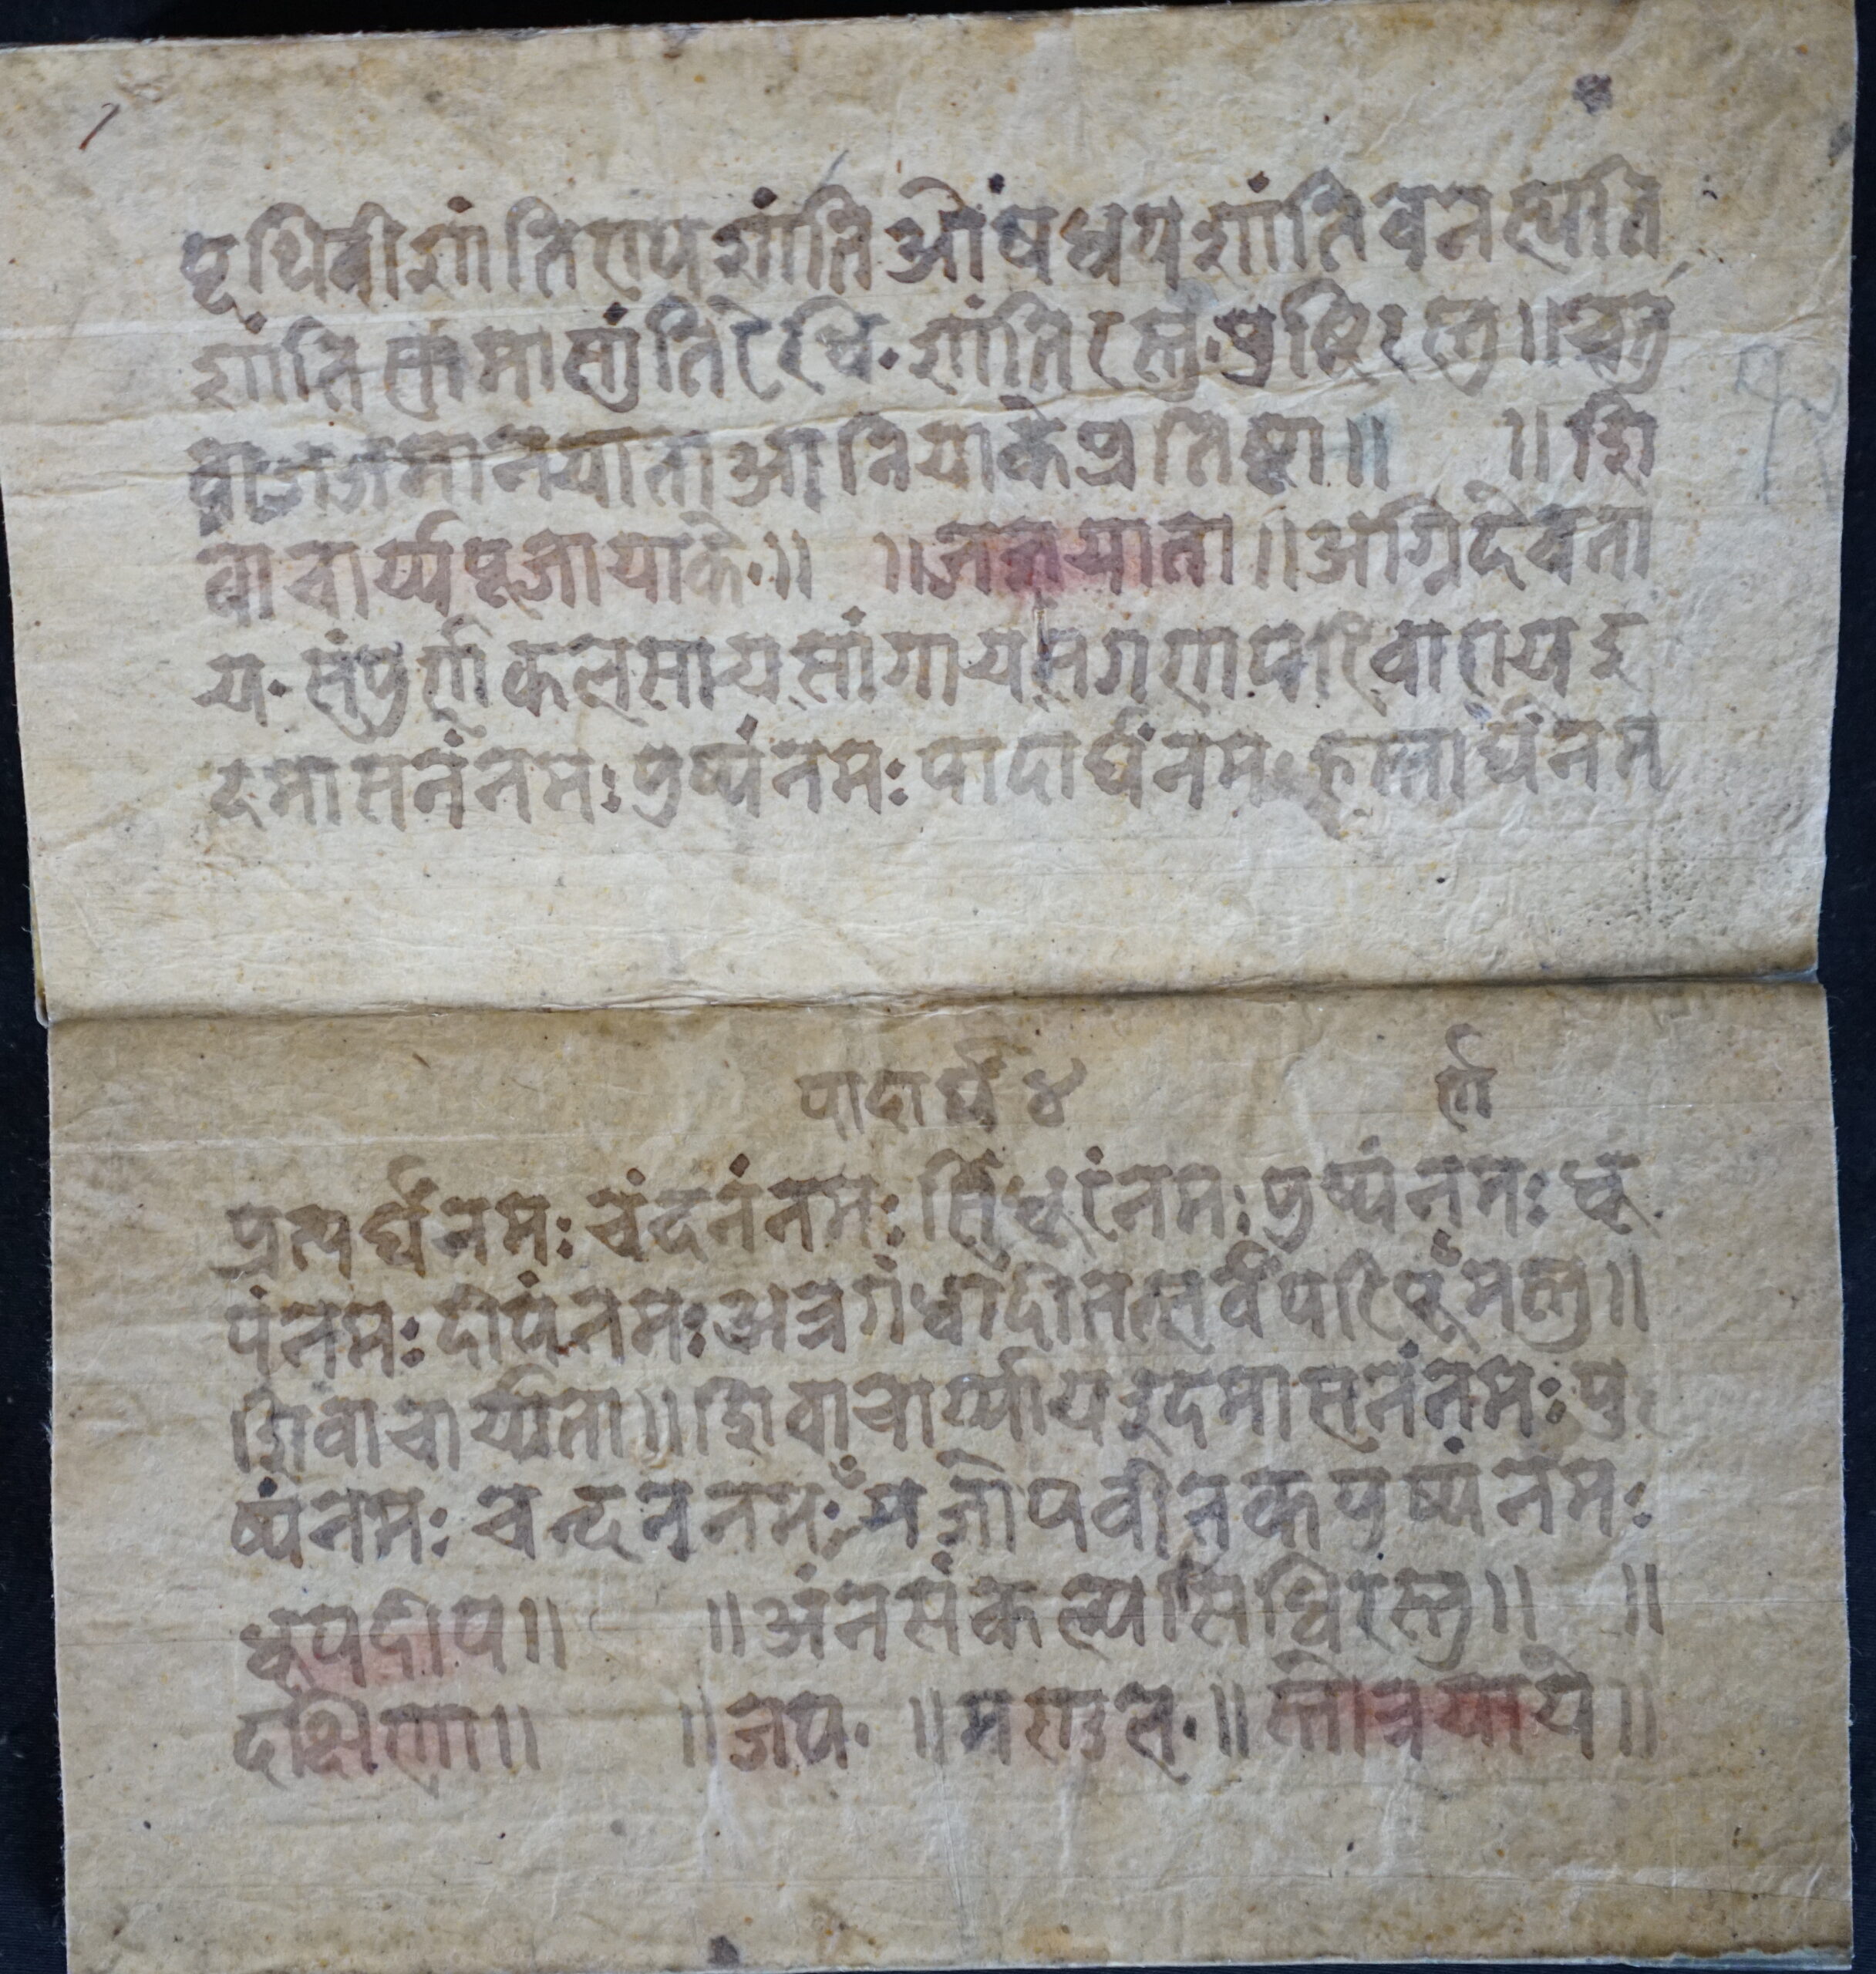 पृथिवीशांतिरापशांतिओंषध्वयशांतिवनस्पति
शांतिसामासांतिरेधि॰शांतिरस्तु॰पुष्टिरस्तु॥
जजमानयाता आनियाके प्रतिष्ठा॥ ॥शि
वाचार्य्यपूजायाके॰॥ ॥अग्निदेवता
य॰संपुर्णकलसायसांगायसगणपरिवारायइ
दमासनंनमः पुष्पंनमः पादार्घंनमः हस्तार्घंनम
पादार्घ ४
र्ण
प्रत्यर्घंनमः चंदनंनमः सिंधुरंनमः पुष्पंनमः धू
पंनमः दीपंनमः अत्रगंधादीतत्सर्वपरिपूमस्तु॥
शिवाचार्य्यता॥शिवाचार्य्यायइदमासनंनमः पु
ष्पंनमः चन्दननमः यजोपवीतकपुष्पंनमः
धूपदीप॥ ॥अंनसंकल्पसिधिरस्तु॥ ॥
दक्षिणा॥ ॥जप॰ ॥मण्डल॰॥स्तोत्रयाये॥